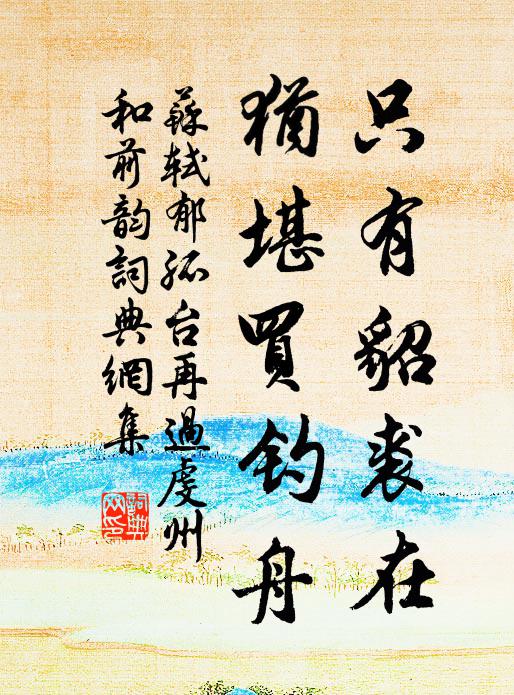 只有貂裘在
猶堪買釣舟
蘇軾郁孤台再過虔州
和前韵詞典網集
詞典網印